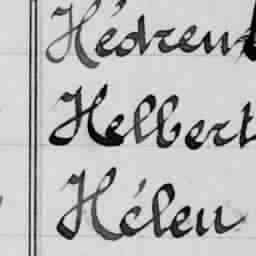 Hédren
Helbert
Hélen